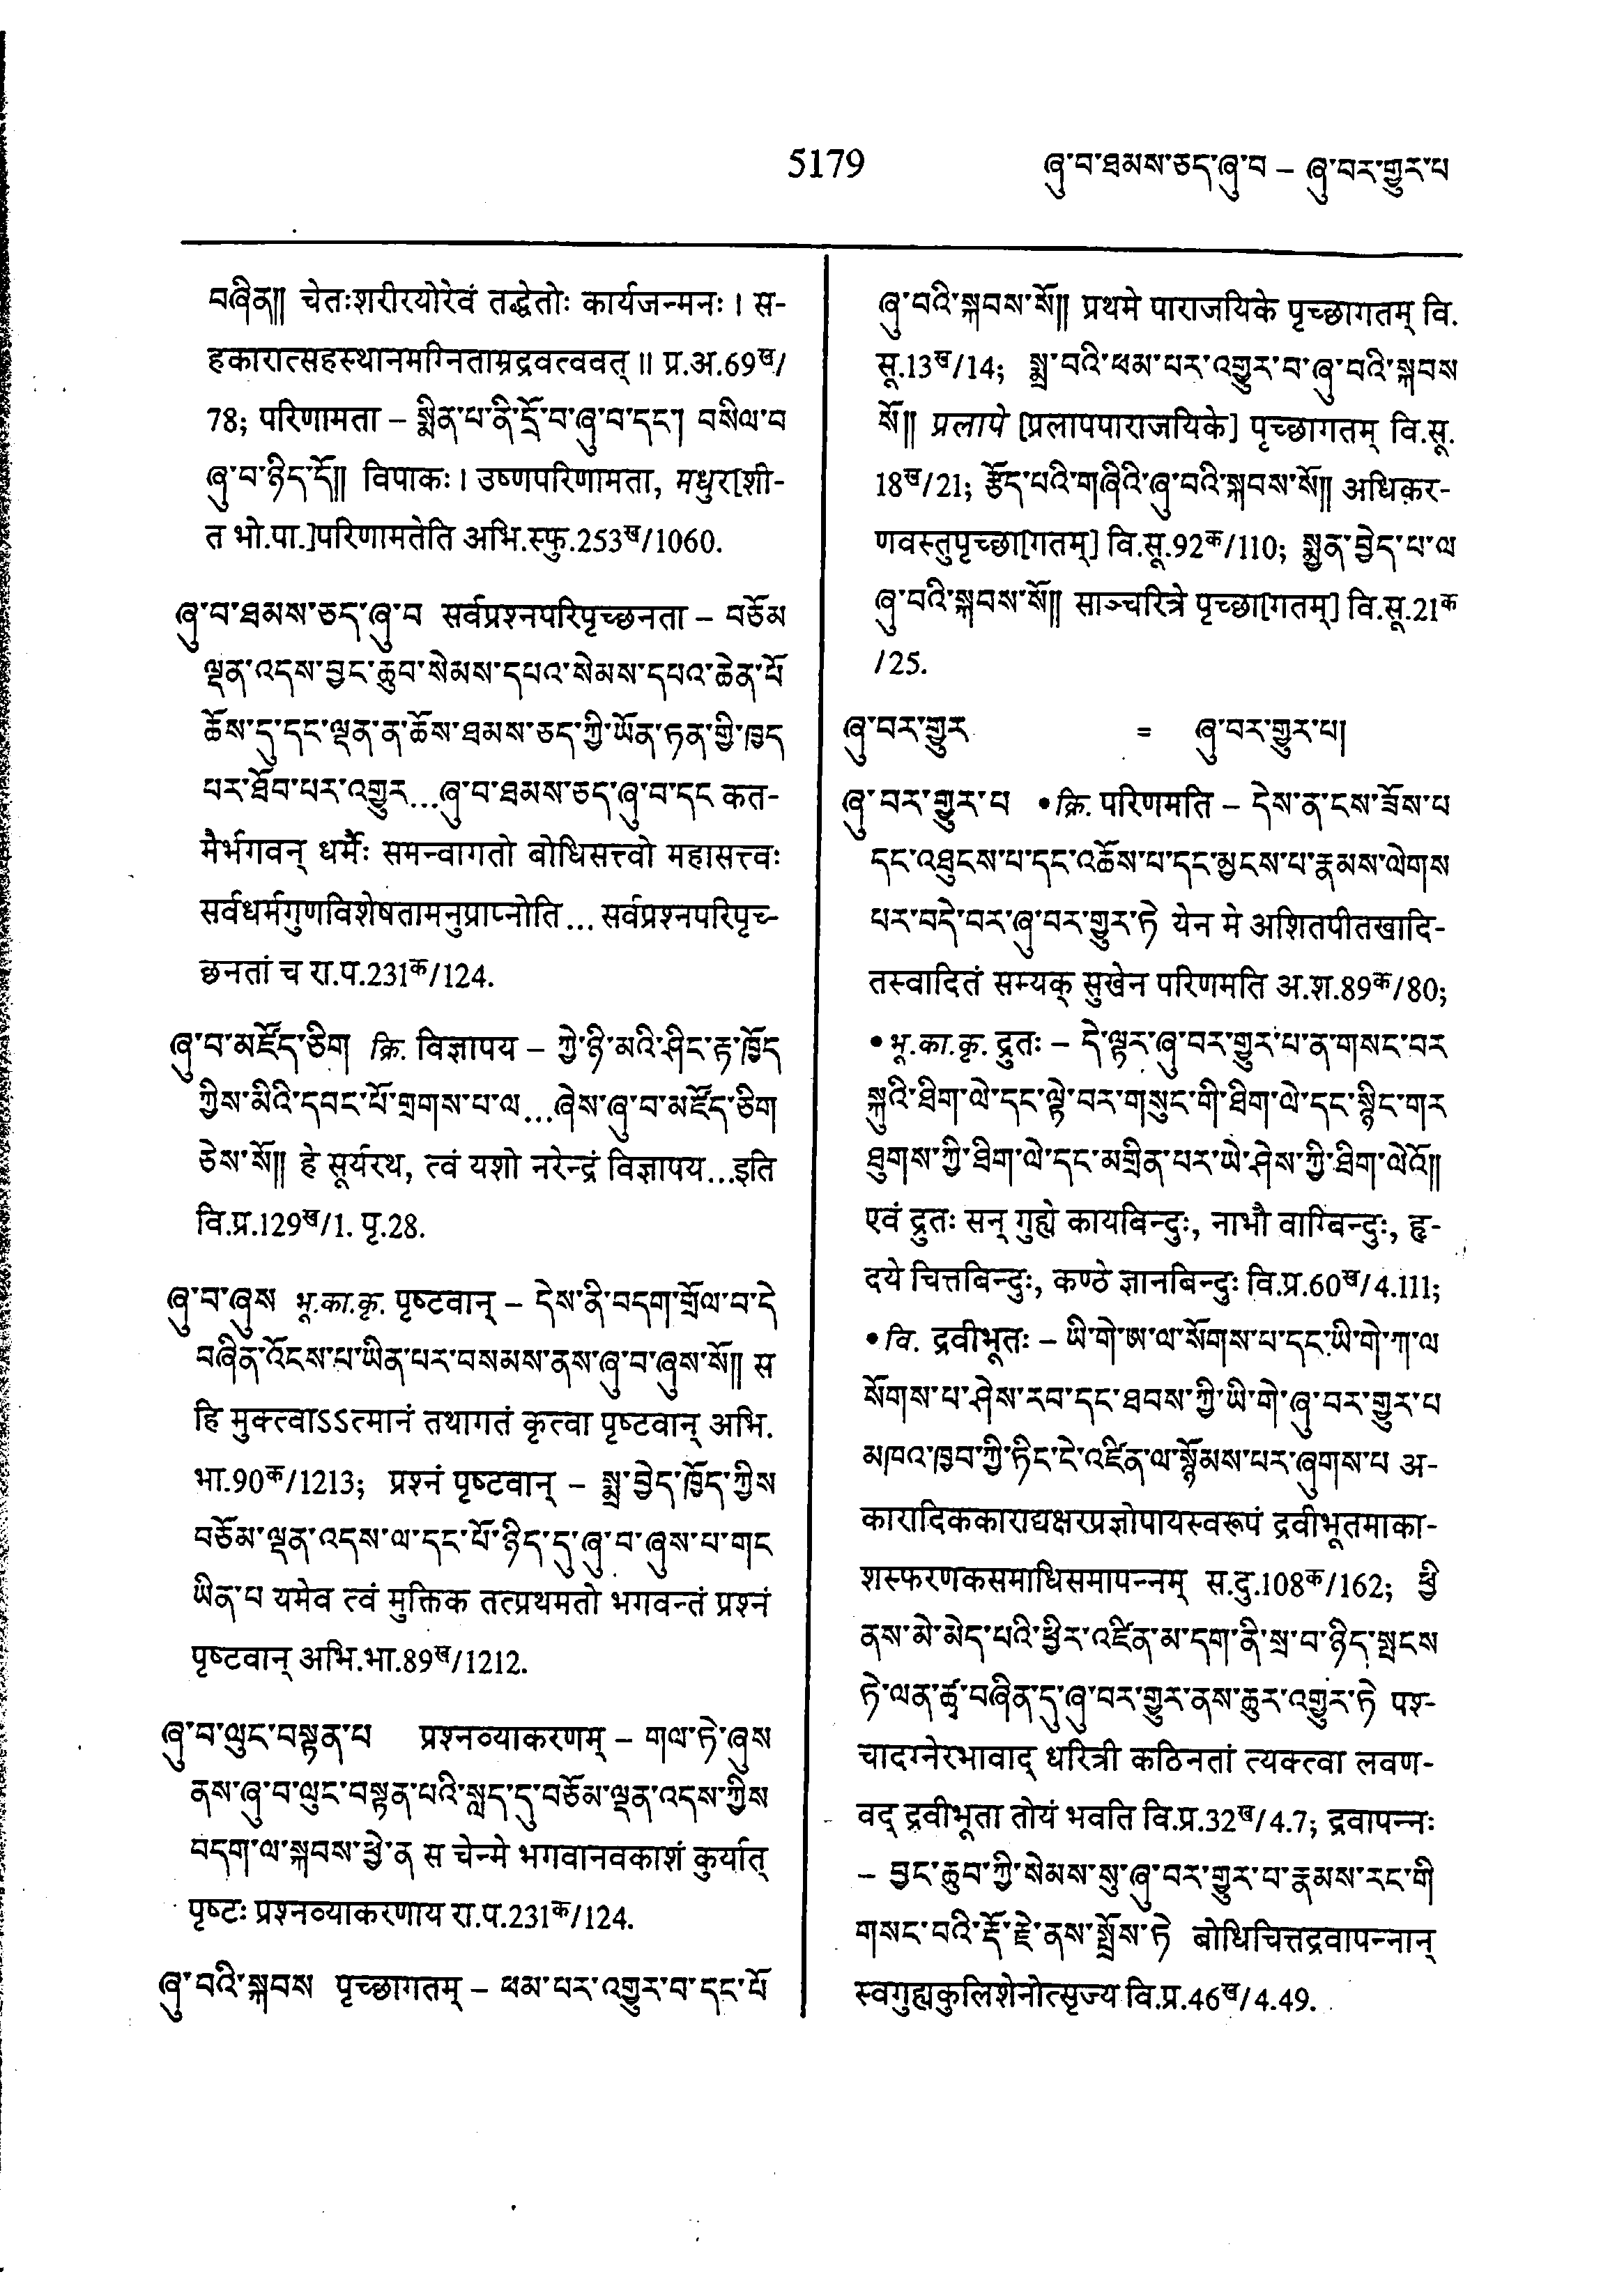 5179
ཞུ་བ་ཐམས་ཅད་ཞུ་བ – ཞུ་བར་གྱུར་པ
བཞིན།། चेतःशरीरयोरेवं तद्धेतोः कार्यजन्मनः । स-
हकारात्सहस्थानमग्निताम्रद्रवत्ववत् ॥ प्र.अ.69ख/
78; परिणामता – སྨིན་པ་ནི་དྲོ་བ་ཞུ་བ་དང་། བསིལ་བ
ཞུ་བ་ཉིད་དོ།། विपाकः । उष्णपरिणामता, मधुर[शी-
त भो.पा.]परिणामतेति अभि.स्फु.253ख/1060.
ཞུ་བ་ཐམས་ཅད་ཞུ་བ सर्वप्रश्नपरिपृच्छनता – བཅོམ
ལྡན་འདས་བྱང་ཆུབ་སེམས་དཔའ་སེམས་དཔའ་ཆེན་པོ
ཆོས་དུ་དང་ལྡན་ན་ཆོས་ཐམས་ཅད་ཀྱི་ཡོན་ཏན་གྱི་ཁྱད
པར་ཐོབ་པར་འགྱུར...ཞུ་བ་ཐམས་ཅད་ཞུ་བ་དང कत-
मैर्भगवन् धर्मैः समन्वागतो बोधिसत्त्वो महासत्त्वः
सर्वधर्मगुणविशेषतामनुप्राप्नोति... सर्वप्रश्नपरिपृच्-
छनतां च रा.प.231क/124.
ཞུ་བ་མཛོད་ཅིག क्रि. विज्ञापय – ཀྱེ་ཉི་མའི་ཤིང་རྟ་ཁྱོད
ཀྱིས་མིའི་དབང་པོ་གྲགས་པ་ལ...ཞེས་ཞུ་བ་མཛོད་ཅིག
ཅེས་སོ།། हे सूर्यरथ, त्वं यशो नरेन्द्रं विज्ञापय...इति
वि.प्र.129ख/1. पृ.28.
ཞུ་བ་ཞུས भू.का.कृ. पृष्टवान् – དེས་ནི་བདག་གྲོལ་བ་དེ
བཞིན་འོངས་པ་ཡིན་པར་བསམས་ནས་ཞུ་བ་ཞུས་སོ།། स
हि मुक्त्वाऽऽत्मानं तथागतं कृत्वा पृष्टवान् अभि.
भा.90क/1213; प्रश्नं पृष्टवान् – སྨྲ་བྱེད་ཁྱོད་ཀྱིས
བཅོམ་ལྡན་འདས་ལ་དང་པོ་ཉིད་དུ་ཞུ་བ་ཞུས་པ་གང
ཡིན་པ यमेव त्वं मुक्तिक तत्प्रथमतो भगवन्तं प्रश्नं
पृष्टवान् अभि.भा.89ख/1212.
ཞུ་བ་ལུང་བསྟན་པ प्रश्नव्याकरणम् – གལ་ཏེ་ཞུས
ནས་ཞུ་བ་ལུང་བསྟན་པའི་སླད་དུ་བཅོམ་ལྡན་འདས་ཀྱིས
བདག་ལ་སྐབས་ཕྱེ་ན स चेन्मे भगवानवकाशं कुर्यात्
पृष्टः प्रश्नव्याकरणाय रा.प.231क/124.
ཞུ་བའི་སྐབས पृच्छागतम् – ཕམ་པར་འགྱུར་བ་དང་པོ
ཞུ་བའི་སྐབས་སོ།། प्रथमे पाराजयिके पृच्छागतम् वि.
सू.13ख/14; སྨྲ་བའི་ཕམ་པར་འགྱུར་བ་ཞུ་བའི་སྐབས
སོ།། प्रलापे [प्रलापपाराजयिके] पृच्छागतम् वि.सू.
18ख/21; རྩོད་པའི་གཞིའི་ཞུ་བའི་སྐབས་སོ།། अधिकर-
णवस्तुपृच्छा[गतम्] वि.सू.92क/110; སྨྱན་བྱེད་པ་ལ
ཞུ་བའི་སྐབས་སོ།། साञ्चरित्रे पृच्छा[गतम्] वि.सू.21क
/25.
ཞུ་བར་གྱུར = ཞུ་བར་གྱུར་པ།
ཞུ་བར་གྱུར་པ • क्रि. परिणमति – དེས་ན་ངས་ཟོས་པ
དང་འཐུངས་པ་དང་འཆོས་པ་དང་མྱངས་པ་རྣམས་ལེགས
པར་བདེ་བར་ཞུ་བར་གྱུར་ཏེ येन मे अशितपीतखादि-
तस्वादितं सम्यक् सुखेन परिणमति अ.श.89क/80;
• भू.का.कृ. द्रुतः – དེ་ལྟར་ཞུ་བར་གྱུར་པ་ན་གསང་བར
སྐུའི་ཐིག་ལེ་དང་ལྟེ་བར་གསུང་གི་ཐིག་ལེ་དང་སྙིང་གར
ཐུགས་ཀྱི་ཐིག་ལེ་དང་མགྲིན་པར་ཡེ་ཤེས་ཀྱི་ཐིག་ལེའོ།།
एवं द्रुतः सन् गुह्ये कायबिन्दुः, नाभौ वाग्बिन्दुः, हृ-
दये चित्तबिन्दुः, कण्ठे ज्ञानबिन्दुः वि.प्र.60ख/4.111;
• वि. द्रवीभूतः – ཡི་གེ་ཨ་ལ་སོགས་པ་དང་ཡི་གེ་ཀ་ལ
སོགས་པ་ཤེས་རབ་དང་ཐབས་ཀྱི་ཡི་གེ་ཞུ་བར་གྱུར་པ
མཁའ་ཁྱབ་ཀྱི་ཏིང་ངེ་འཛིན་ལ་སྙོམས་པར་ཞུགས་པ अ-
कारादिककाराद्यक्षरप्रज्ञोपायस्वरूपं द्रवीभूतमाका-
शस्फरणकसमाधिसमापन्नम् स.दु.108क/162; ཕྱི
ནས་མེ་མེད་པའི་ཕྱིར་འཛིན་མ་དག་ནི་སྲ་བ་ཉིད་སྤངས
ཏེ་ལན་ཚྭ་བཞིན་དུ་ཞུ་བར་གྱུར་ནས་ཆུར་འགྱུར་ཏེ पश्-
चादग्नेरभावाद् धरित्री कठिनतां त्यक्त्वा लवण-
वद् द्रवीभूता तोयं भवति वि.प्र.32ख/4.7; द्रवापन्नः
– བྱང་ཆུབ་ཀྱི་སེམས་སུ་ཞུ་བར་གྱུར་བ་རྣམས་རང་གི
གསང་བའི་རྡོ་རྗེ་ནས་སྤྲོས་ཏེ बोधिचित्तद्रवापन्नान्
स्वगुह्यकुलिशेनोत्सृज्य वि.प्र.46ख/4.49.